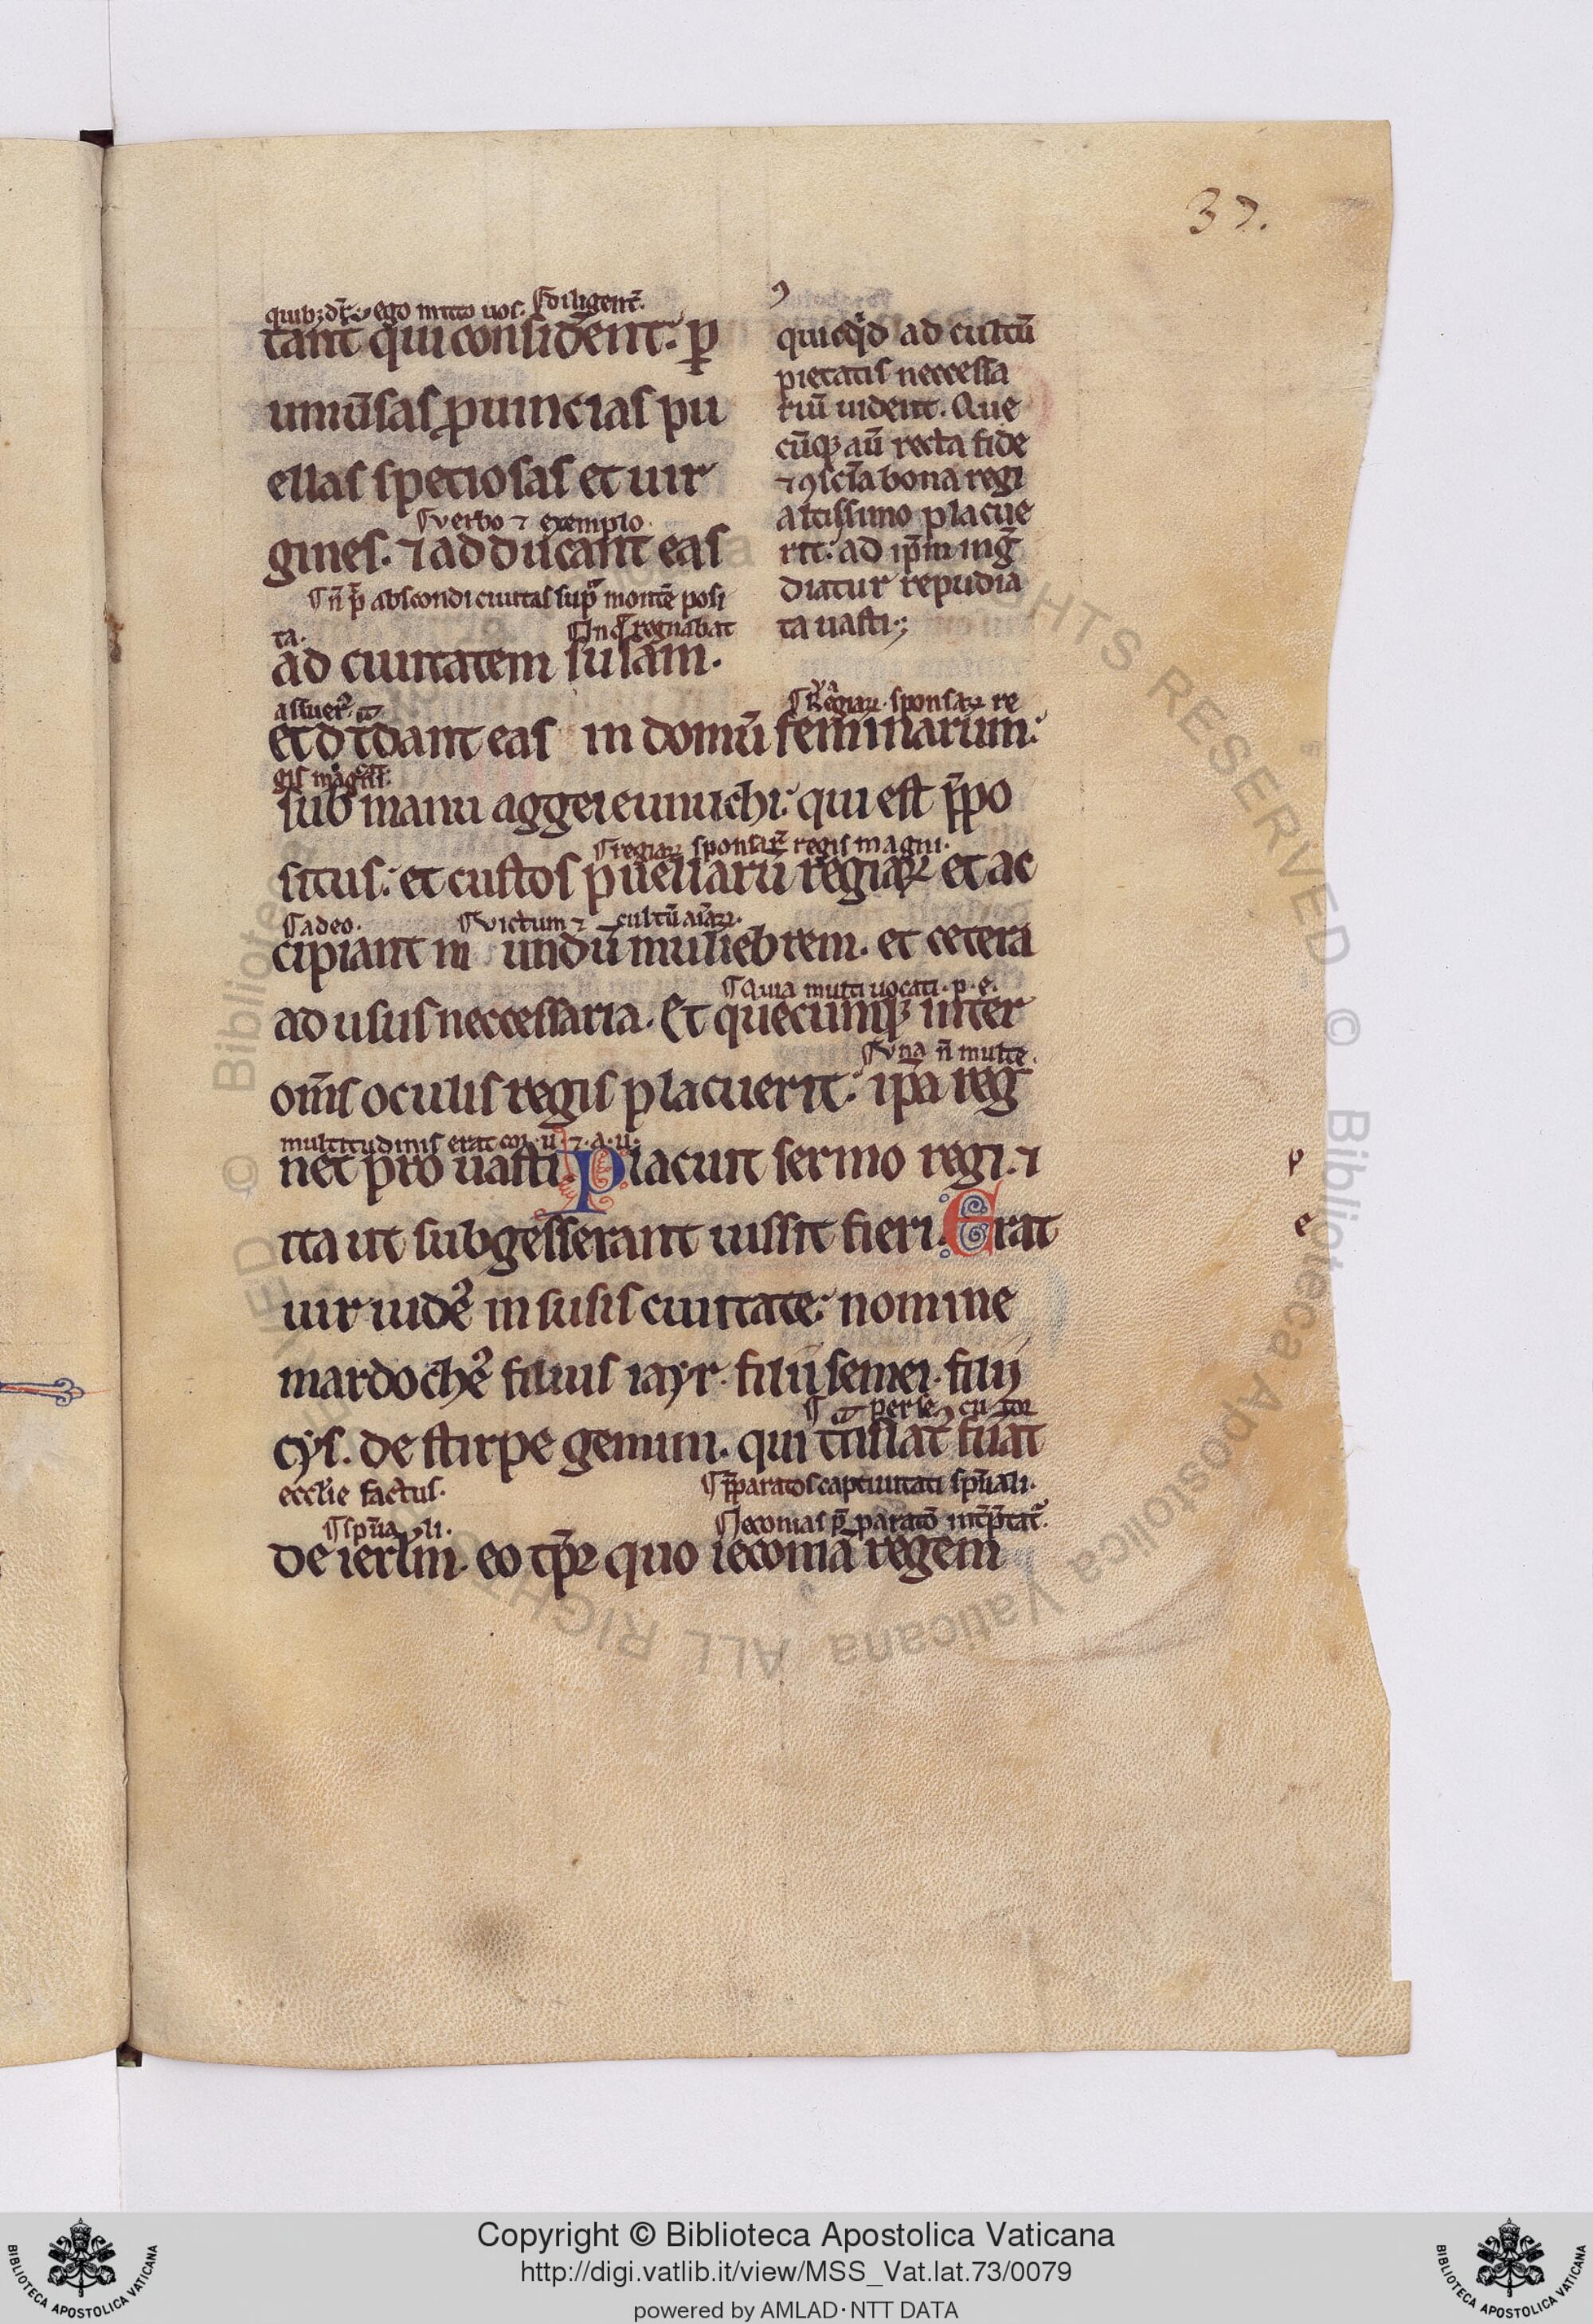 37.
quib; dr̄. ego mitto uos. ¶diligent̄.
tant qui consid̄ent. ꝑ
uniūsas ꝓuincias pu
ellas speciosas et uir
¶verbo ⁊ exemplo.
gines. ⁊ adducant eas
¶n̄ p̄ abscondi ciuitas sup̄ montē posi
ta. ¶In q̄ regnabat
ad ciuitatem susam.
quicq̇d ad cultū
pietatis neccessa
riū uident. Que
cūqꝫ aū recta fide
⁊ ꝯsciā bona regi
altissimo placue
rit. ad ip̄m inḡ
diatur repudia
ta uasti.
assuer᷒. ¶Regiaꝝ sponsaꝝ re
et t̄dant eas in domū feminarum.
gis magni.
sub manu aggei eunuchi. qui est p̄po
¶regiaꝝ sponsaꝝ regis magni.
situs. et custos puellarū regiaꝝ et ac
¶a deo. ¶victum ⁊ cultū aīaꝝ.
cipiant m undū muliebrem. et cetera
¶Quia multi uocati. p. e.
ad usus neccessaria. Et quecumqꝫ inter
¶vna n̄ multe.
om̄s oculis regis placuerit. ip̄a reḡ
multitudinis erat coꝝ. u. ⁊. a. u.
net pro uasti. Placuit sermo regi. ⁊
ita ut subgesserant iussit fieri. Erat
uir iude᷒ in susis ciuitate. nomine
mardoche᷒ filius iayr. filii semei. filij
cys. de stirpe gemini. qui t̄nslat᷒ fuat
ecclīe factus. ¶p̄paratos captiuitati sp̄uali.
¶sp̄uali. ¶Ieconias p̄paratō int̄p̄tat᷒.
de ierlm̄. eo tp̄ꝝ quo ieconiā regem
p
e
Copyright © Biblioteca Apostolica Vaticana
http://digi.vatlib.it/view/MSS_Vat.lat.73/0079
powered by AMLAD·NTT DATA
BIBLIOTECA APOSTOLICA VATICANA
BIBLIOTECA APOSTOLICA VATICANA